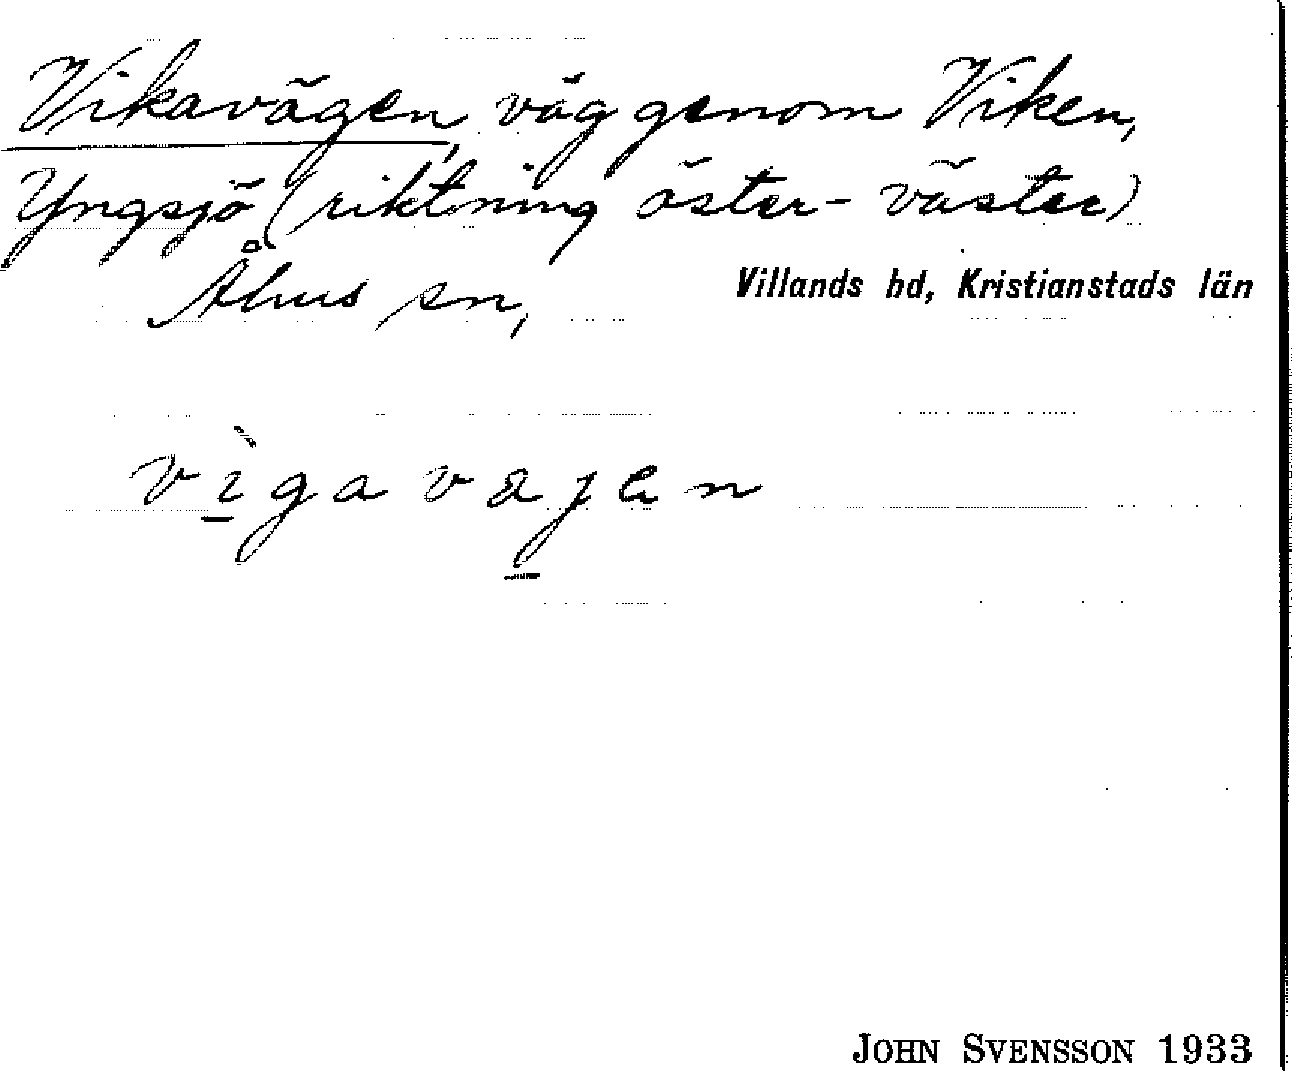 Vikavägen, väg genom Viken,
Yngsjö (riktning öster-väster)
Åhus sn, Villands hd, Kristianstads län
vìgavajen
JOHN SVENSSON 1933